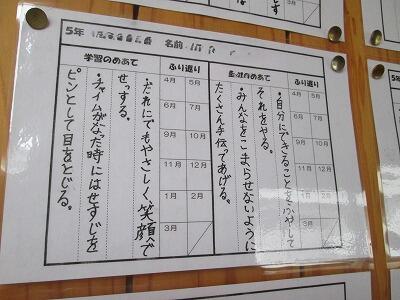 5年
名前
学習のめあて
ふり返り
4月 5月
6月 7月
9月 10月
11月 12月
1月 2月
3月
・だれにでもやさしく、笑顔で
せっする。
・チャイムがなった時にはせすじを
ピンとして目をとじる。
のめあて
ふり返り
4月 5月
6月 7月
9月 10月
11月 12月
1月 2月
3月
・自分にできることをふやして
それをやる。
・みんなをこまらせないように
たくさん手伝ってあげる。